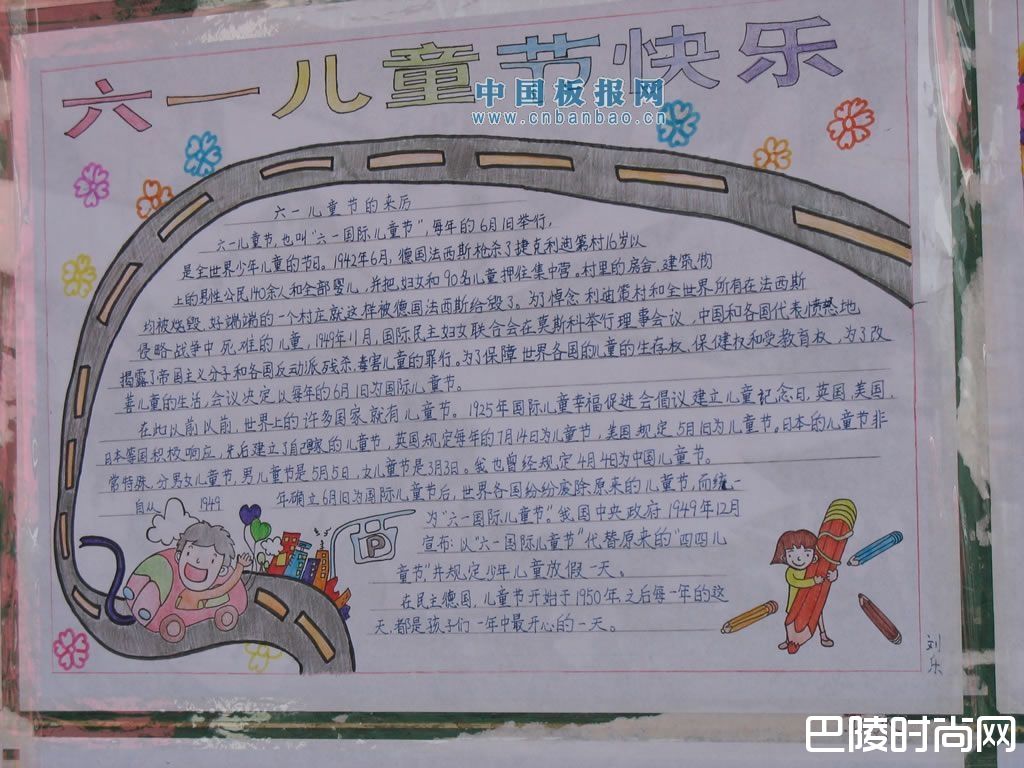 六一儿童节快乐
中国板报网
www.cnbanbao.cn
六一儿童节的来历
六一儿童节,也叫“六一国际儿童节”,每年的6月1日举行,
是全世界少年儿童的节日。1942年6月,德国法西斯枪杀了捷克利迪策村16岁以
上的男性公民140余人和全部婴儿,并把妇女和90名儿童押往集中营。村里的房舍、建筑物
均被烧毁,好端端的一个村庄就这样被德国法西斯给毁了。为了悼念利迪策村和全世界所有在法西斯
侵略战争中死难的儿童,1949年11月,国际民主妇女联合会在莫斯科举行理事会议,中国和各国代表愤怒地
揭露了帝国主义分子和各国反动派残杀、毒害儿童的罪行。为了保障世界各国的儿童的生存权、保健权和受教育权,为了改
善儿童的生活,会议决定以每年的6月1日为国际儿童节。
在此以前以前,世界上的许多国家就有儿童节。1925年国际儿童幸福促进会倡议建立儿童纪念日,英国,美国,
日本等国积极响应,先后建立了自己国家的儿童节,英国规定每年的7月14日为儿童节,美国规定5月1日为儿童节。日本的儿童节非
常特殊,分男女儿童节,男儿童节是5月5日,女儿童节是3月3日。我也曾经规定4月4日为中国儿童节。
自从 1949 年确立6月1日为国际儿童节后,世界各国纷纷废除原来的儿童节,而统一
为“六一国际儿童节”。我国中央政府1949年12月
宣布:以“六一国际儿童节”代替原来的“四四儿
童节”,并规定少年儿童放假一天。
在民主德国,儿童节开始于1950年,之后每一年的这
天,都是孩子们一年中最开心的一天。
P
刘乐
巴陵时尚网